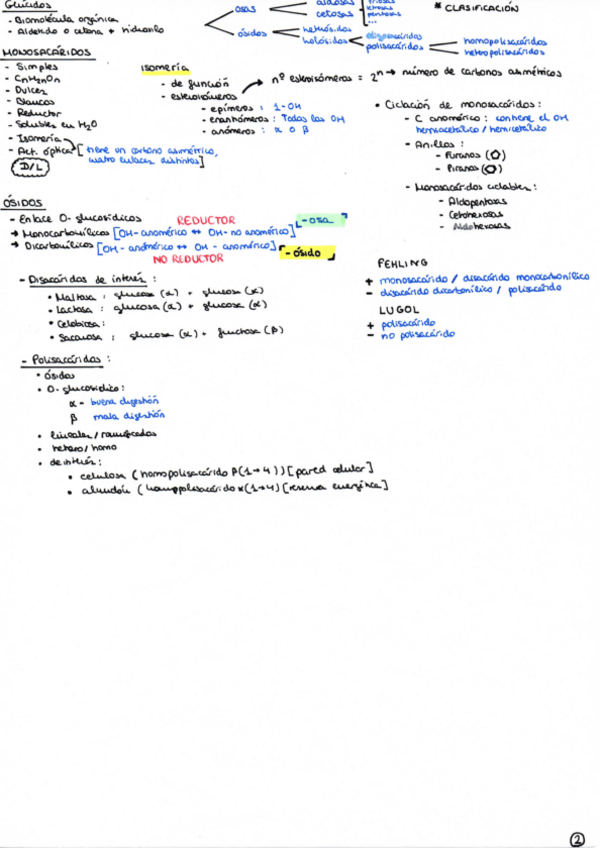 Glúcidos
- Biomolécula orgánica
- Aldehído o cetona + hidroxilo
osas
aldosas
cetosas
triosas
tetrosas
pentosas
...
ósidos
heterósidos
holósidos
oligosacáridos
polisacáridos
homopolisacáridos
heteropolisacáridos
* CLASIFICACIÓN
MONOSACÁRIDOS
- Simples
- CnH2nOn
- Dulces
- Blancos
- Reductor
- Solubles en H2O
- Isomería
- Act. óptica [tiene un carbono asimétrico, cuatro enlaces distintos]
D/L
Isomería
- de función
- estereoisómeros
nº estereoisómeros = 2ⁿ → número de carbonos asimétricos
- epímeros : 1-OH
- enantiómeros : Todos los OH
- anómeros : α o β
• Ciclación de monosacáridos:
- C anomérico : contiene el OH
hemiacetálico / hemicetálico
- Anillos :
- Furanos
- Piranos
- Monosacáridos ciclables :
- Aldopentosas
- Cetohexosas
- Aldohexosas
ÓSIDOS
- Enlace O-glucosídicos
REDUCTOR
→ Monocarbonílicos [OH-anomérico ↔ OH-no anomérico]
-osa
→ Dicarbonílicos [OH-anomérico ↔ OH-anomérico]
-ósido
NO REDUCTOR
- Disacáridos de interés :
• Maltosa : glucosa (α) + glucosa (α)
• Lactosa : glucosa (α) + glucosa (α)
• Celobiosa :
• Sacarosa : glucosa (α) + fructosa (β)
FEHLING
+ monosacárido / disacárido monocarbonílico
- disacárido dicarbonílico / polisacárido
LUGOL
+ polisacárido
- no polisacárido
- Polisacáridos :
• ósidos
• O-glucosídico :
α - buena digestión
β mala digestión
• lineales / ramificados
• hetero / homo
• de interés :
• celulosa (homopolisacárido β(1→4)) [pared celular]
• almidón (homopolisacárido α(1→4) [reserva energética]
2